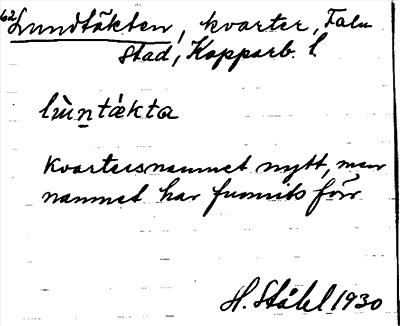 62 Lundtäkten, kvarter, Falu
stad, Kopparb. l.
lùntákta
Kvartersnamnet nytt, men
namnet har funnits förr
H. Ståhl 1930